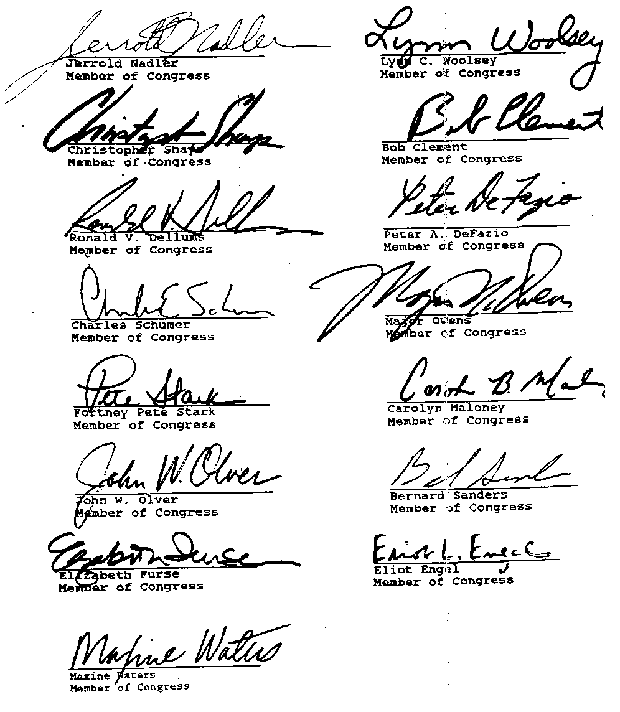 Jerrold Nadler
Jerrold Nadler
Member of Congress
Lynn Woolsey
Lynn C. Woolsey
Member of Congress
Christopher Shays
Christopher Shays
Member of Congress
Bob Clement
Bob Clement
Member of Congress
Ronald V. Dellums
Member of Congress
Peter DeFazio
Peter A. DeFazio
Member of Congress
Charles E. Schumer
Charles Schumer
Member of Congress
Major Owens
Major Owens
Member of Congress
Pete Stark
Fortney Pete Stark
Member of Congress
Carolyn B. Maloney
Carolyn Maloney
Member of Congress
John W. Olver
John W. Olver
Member of Congress
Bernard Sanders
Member of Congress
Elizabeth Furse
Elizabeth Furse
Member of Congress
Eliot L. Engel
Eliot Engel
Member of Congress
Maxine Waters
Maxine Waters
Member of Congress